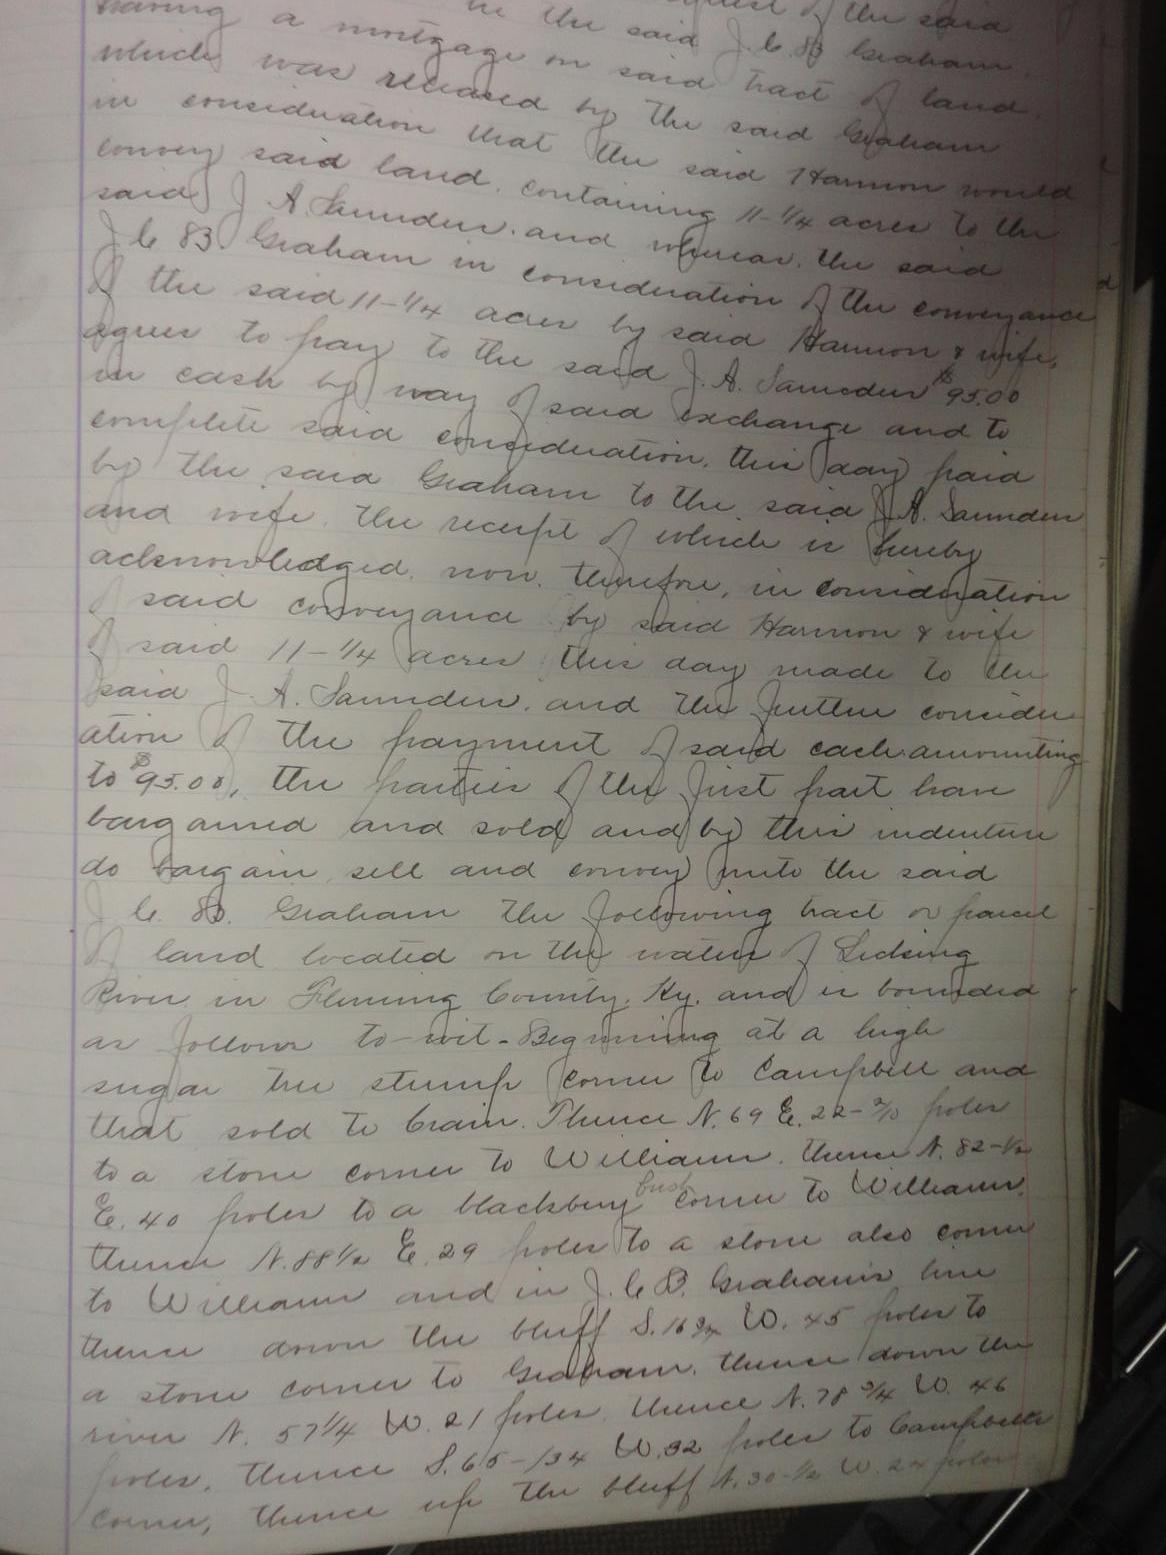 having a in the said J. C. B. Graham
mortgage on said tract of land
which was released by the said Graham
in consideration that the said Harmon would
convey said land, containing 11-1/4 acres to the
said J. A. Saunders, and whereas, the said
J. C. B. Graham in consideration of the conveyance
of the said 11-1/4 acres by said Harmon & wife,
agrees to pay to the said J. A. Saunders $95.00
in cash by way of said exchange and to
complete said consideration, this day paid
by the said Graham to the said J. A. Saunders
and wife, the receipt of which is hereby
acknowledged, now, therefore, in consideration
of said conveyance by said Harmon & wife
of said 11-1/4 acres this day made to the
said J. A. Saunders, and the further consider-
ation of the payment of said cash amounting
to $95.00, the parties of the first part have
bargained and sold and by this indenture
do bargain, sell and convey unto the said
J. C. B. Graham the following tract or parcel
of land located on the waters of Licking
River in Fleming County, Ky. and is bounded
as follows to-wit - Beginning at a high
sugar tree stump corner to Campbell and
that sold to Crain. Thence N. 69 E. 22- poles
to a stone corner to Williams, thence N. 82-1/2
E. 40 poles to a blackberry bush corner to Williams,
thence N. 88 1/2 E. 29 poles to a stone also corner
to Williams and in J. C. B. Graham's line
thence down the bluff S. 16 3/4 W. 45 poles to
a stone corner to Graham, thence down the
river N. 57 1/4 W. 21 poles, thence N. 78 3/4 W. 46
poles, thence S. 65- W. 32 poles to Campbells
corner, thence up the bluff N. 30-1/2 W. 24 poles